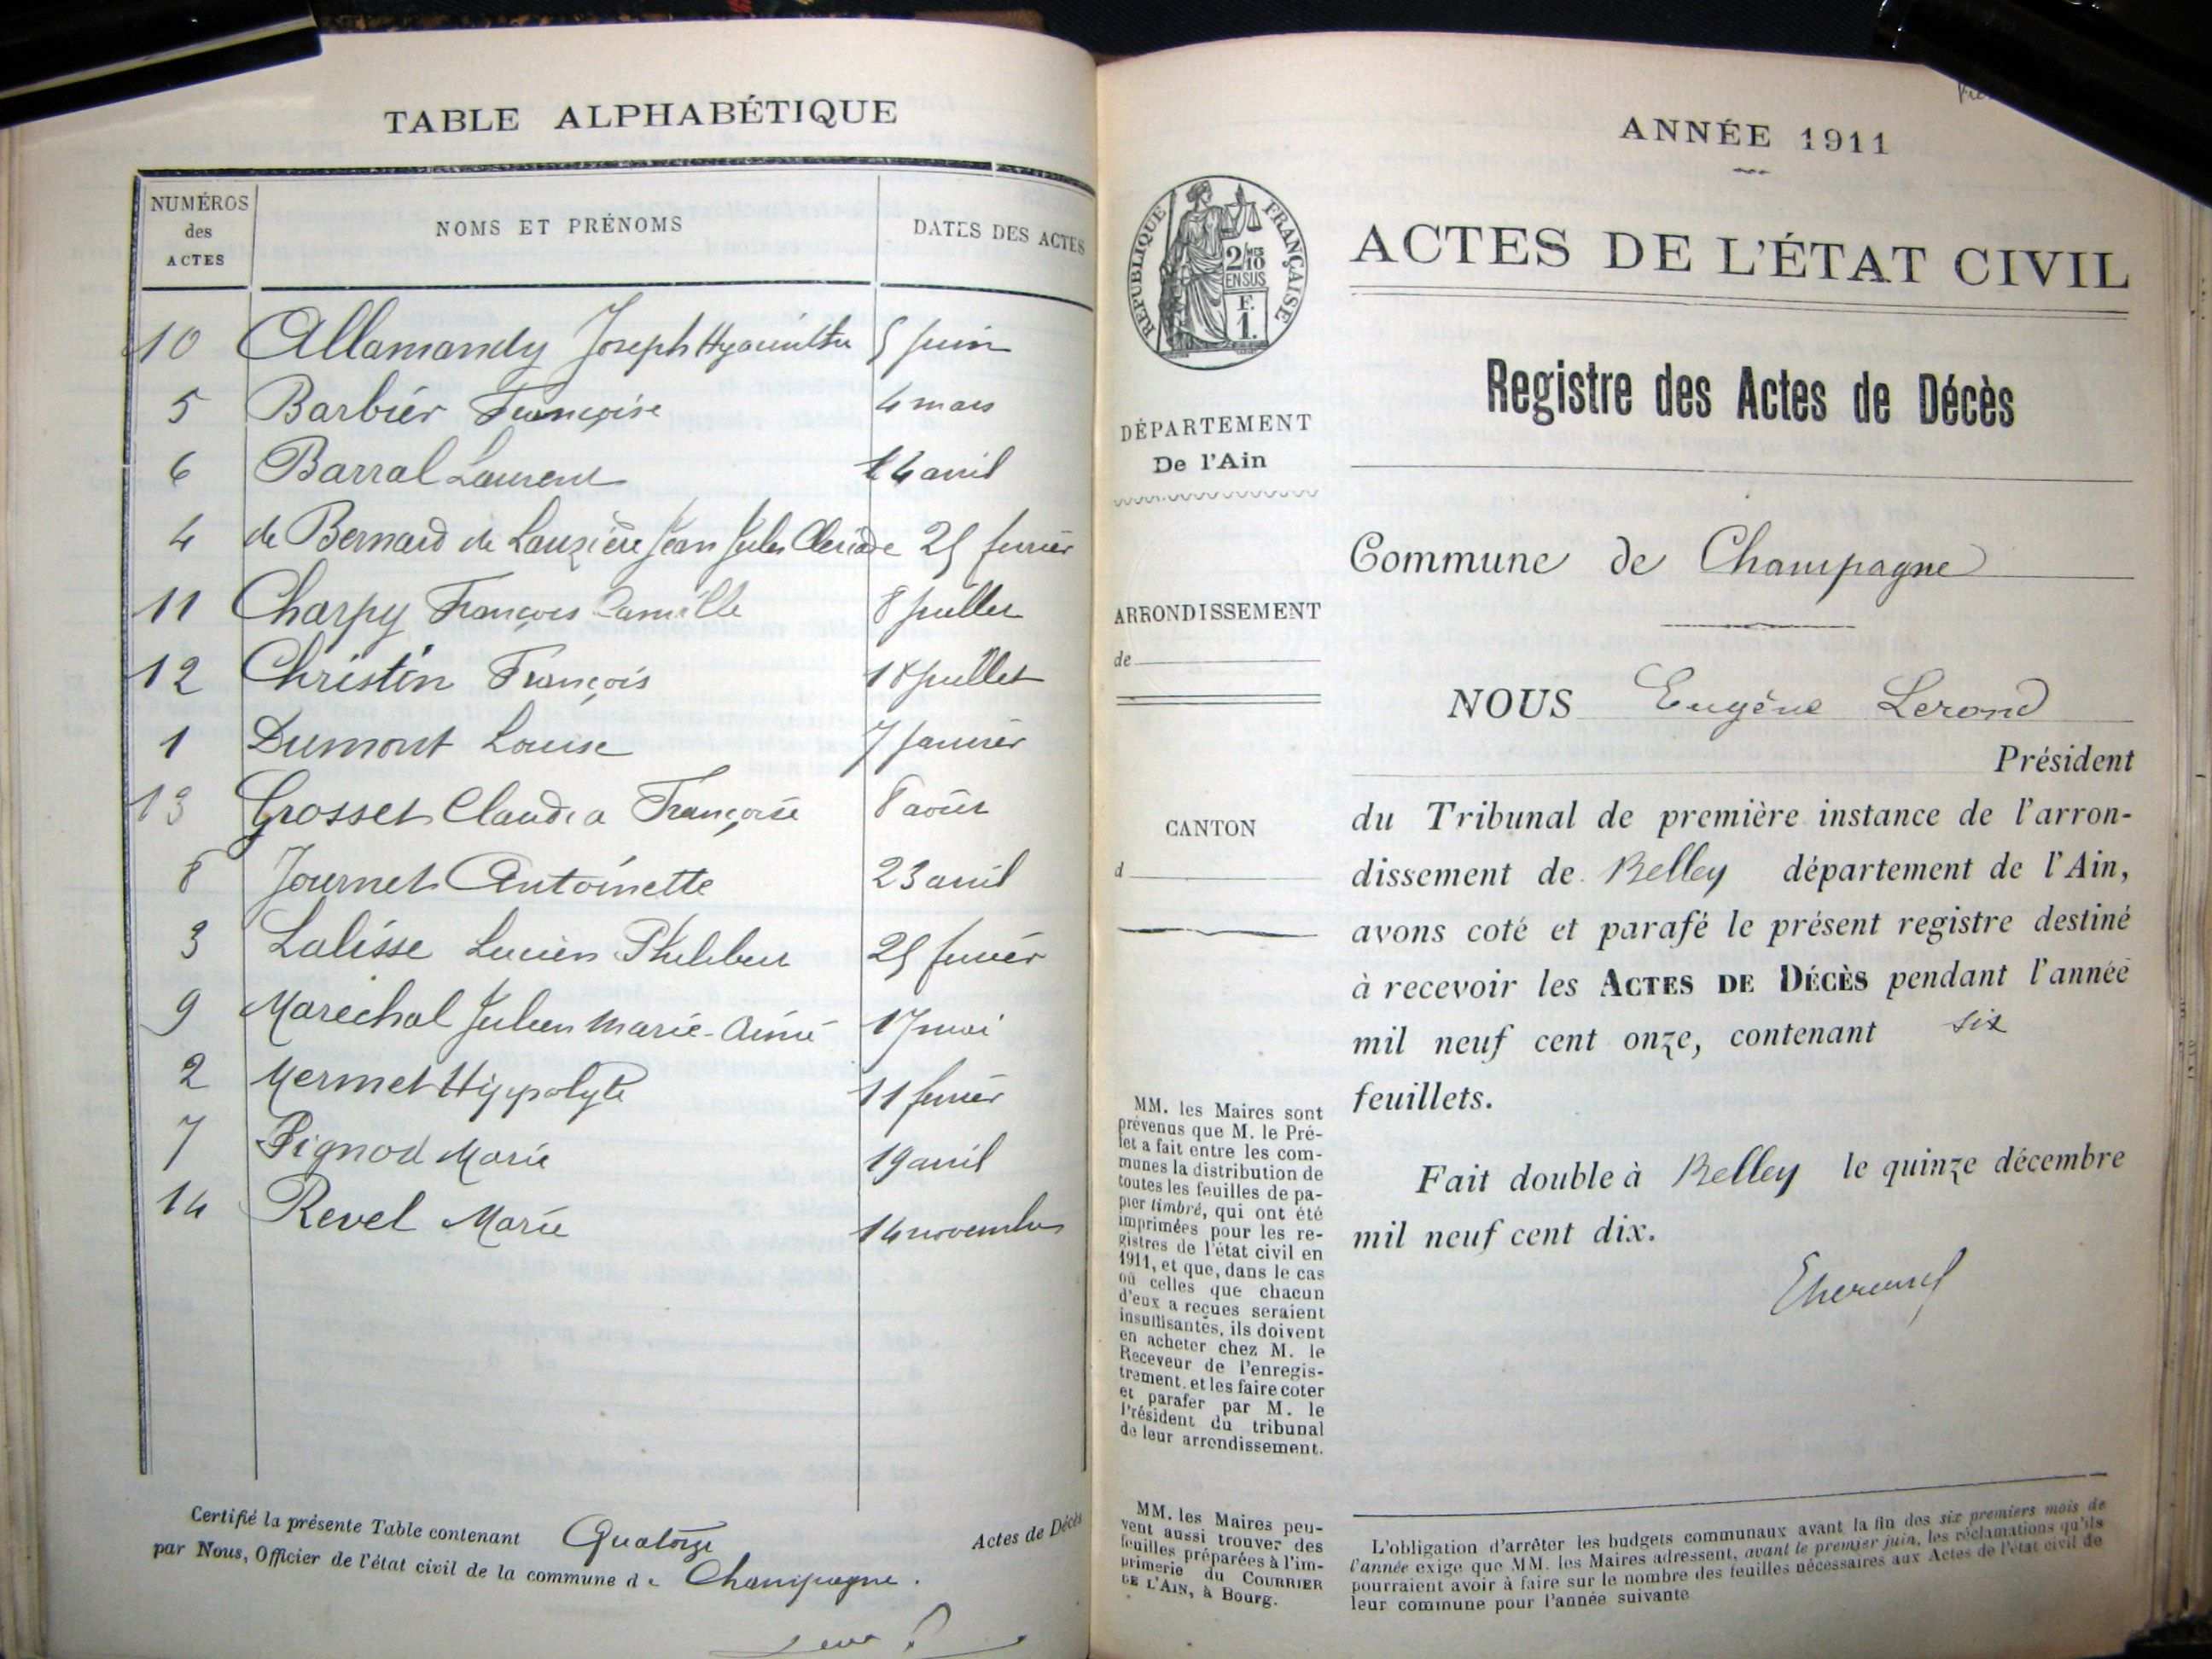 TABLE ALPHABÉTIQUE
NUMÉROS des ACTES NOMS ET PRÉNOMS DATES DES ACTES
10 Allamandy Joseph Hyacinthe 5 juin
5 Barbier Françoise 4 mars
6 Barral Laurent 14 avril
4 de Bernard de Lauzière Jean Jules 25 février
11 Charpy François Camille 8 juillet
12 Christin François 18 juillet
1 Dumont Louise 7 janvier
13 Grosset Claudia Françoise 8 août
8 Journet Antoinette 23 avril
3 Lalisse Lucien Philibert 25 février
9 Maréchal Julien Marie-Aimé 17 mai
2 Mermet Hippolyte 11 février
7 Pignod Marie 19 avril
14 Revel Marie 14 novembre
Certifié la présente Table contenant Quatorze Actes de Décès
par Nous, Officier de l'état civil de la commune de Champagne.
ANNÉE 1911
RÉPUBLIQUE FRANÇAISE
2/10 EN SUS
F. 1.
ACTES DE L'ÉTAT CIVIL
Registre des Actes de Décès
DÉPARTEMENT
De l'Ain
ARRONDISSEMENT
de
CANTON
d
MM. les Maires sont
prévenus que M. le Pré-
fet a fait entre les com-
munes la distribution de
toutes les feuilles de pa-
pier timbré, qui ont été
imprimées pour les re-
gistres de l'état civil en
1911, et que, dans le cas
où celles que chacun
d'eux a reçues seraient
insuffisantes, ils doivent
en acheter chez M. le
Receveur de l'enregis-
trement, et les faire coter
et parafer par M. le
Président du tribunal
de leur arrondissement.
MM. les Maires peu-
vent aussi trouver des
feuilles préparées à l'im-
primerie du COURRIER
DE L'AIN, à Bourg.
Commune de Champagne
NOUS Eugène Lerond
Président
du Tribunal de première instance de l'arron-
dissement de Belley département de l'Ain,
avons coté et parafé le présent registre destiné
à recevoir les ACTES DE DÉCÈS pendant l'année
mil neuf cent onze, contenant six
feuillets.
Fait double à Belley le quinze décembre
mil neuf cent dix.
L'obligation d'arrêter les budgets communaux avant la fin des six premiers mois de
l'année exige que MM. les Maires adressent, avant le premier juin, les réclamations qu'ils
pourraient avoir à faire sur le nombre des feuilles nécessaires aux Actes de l'état civil de
leur commune pour l'année suivante